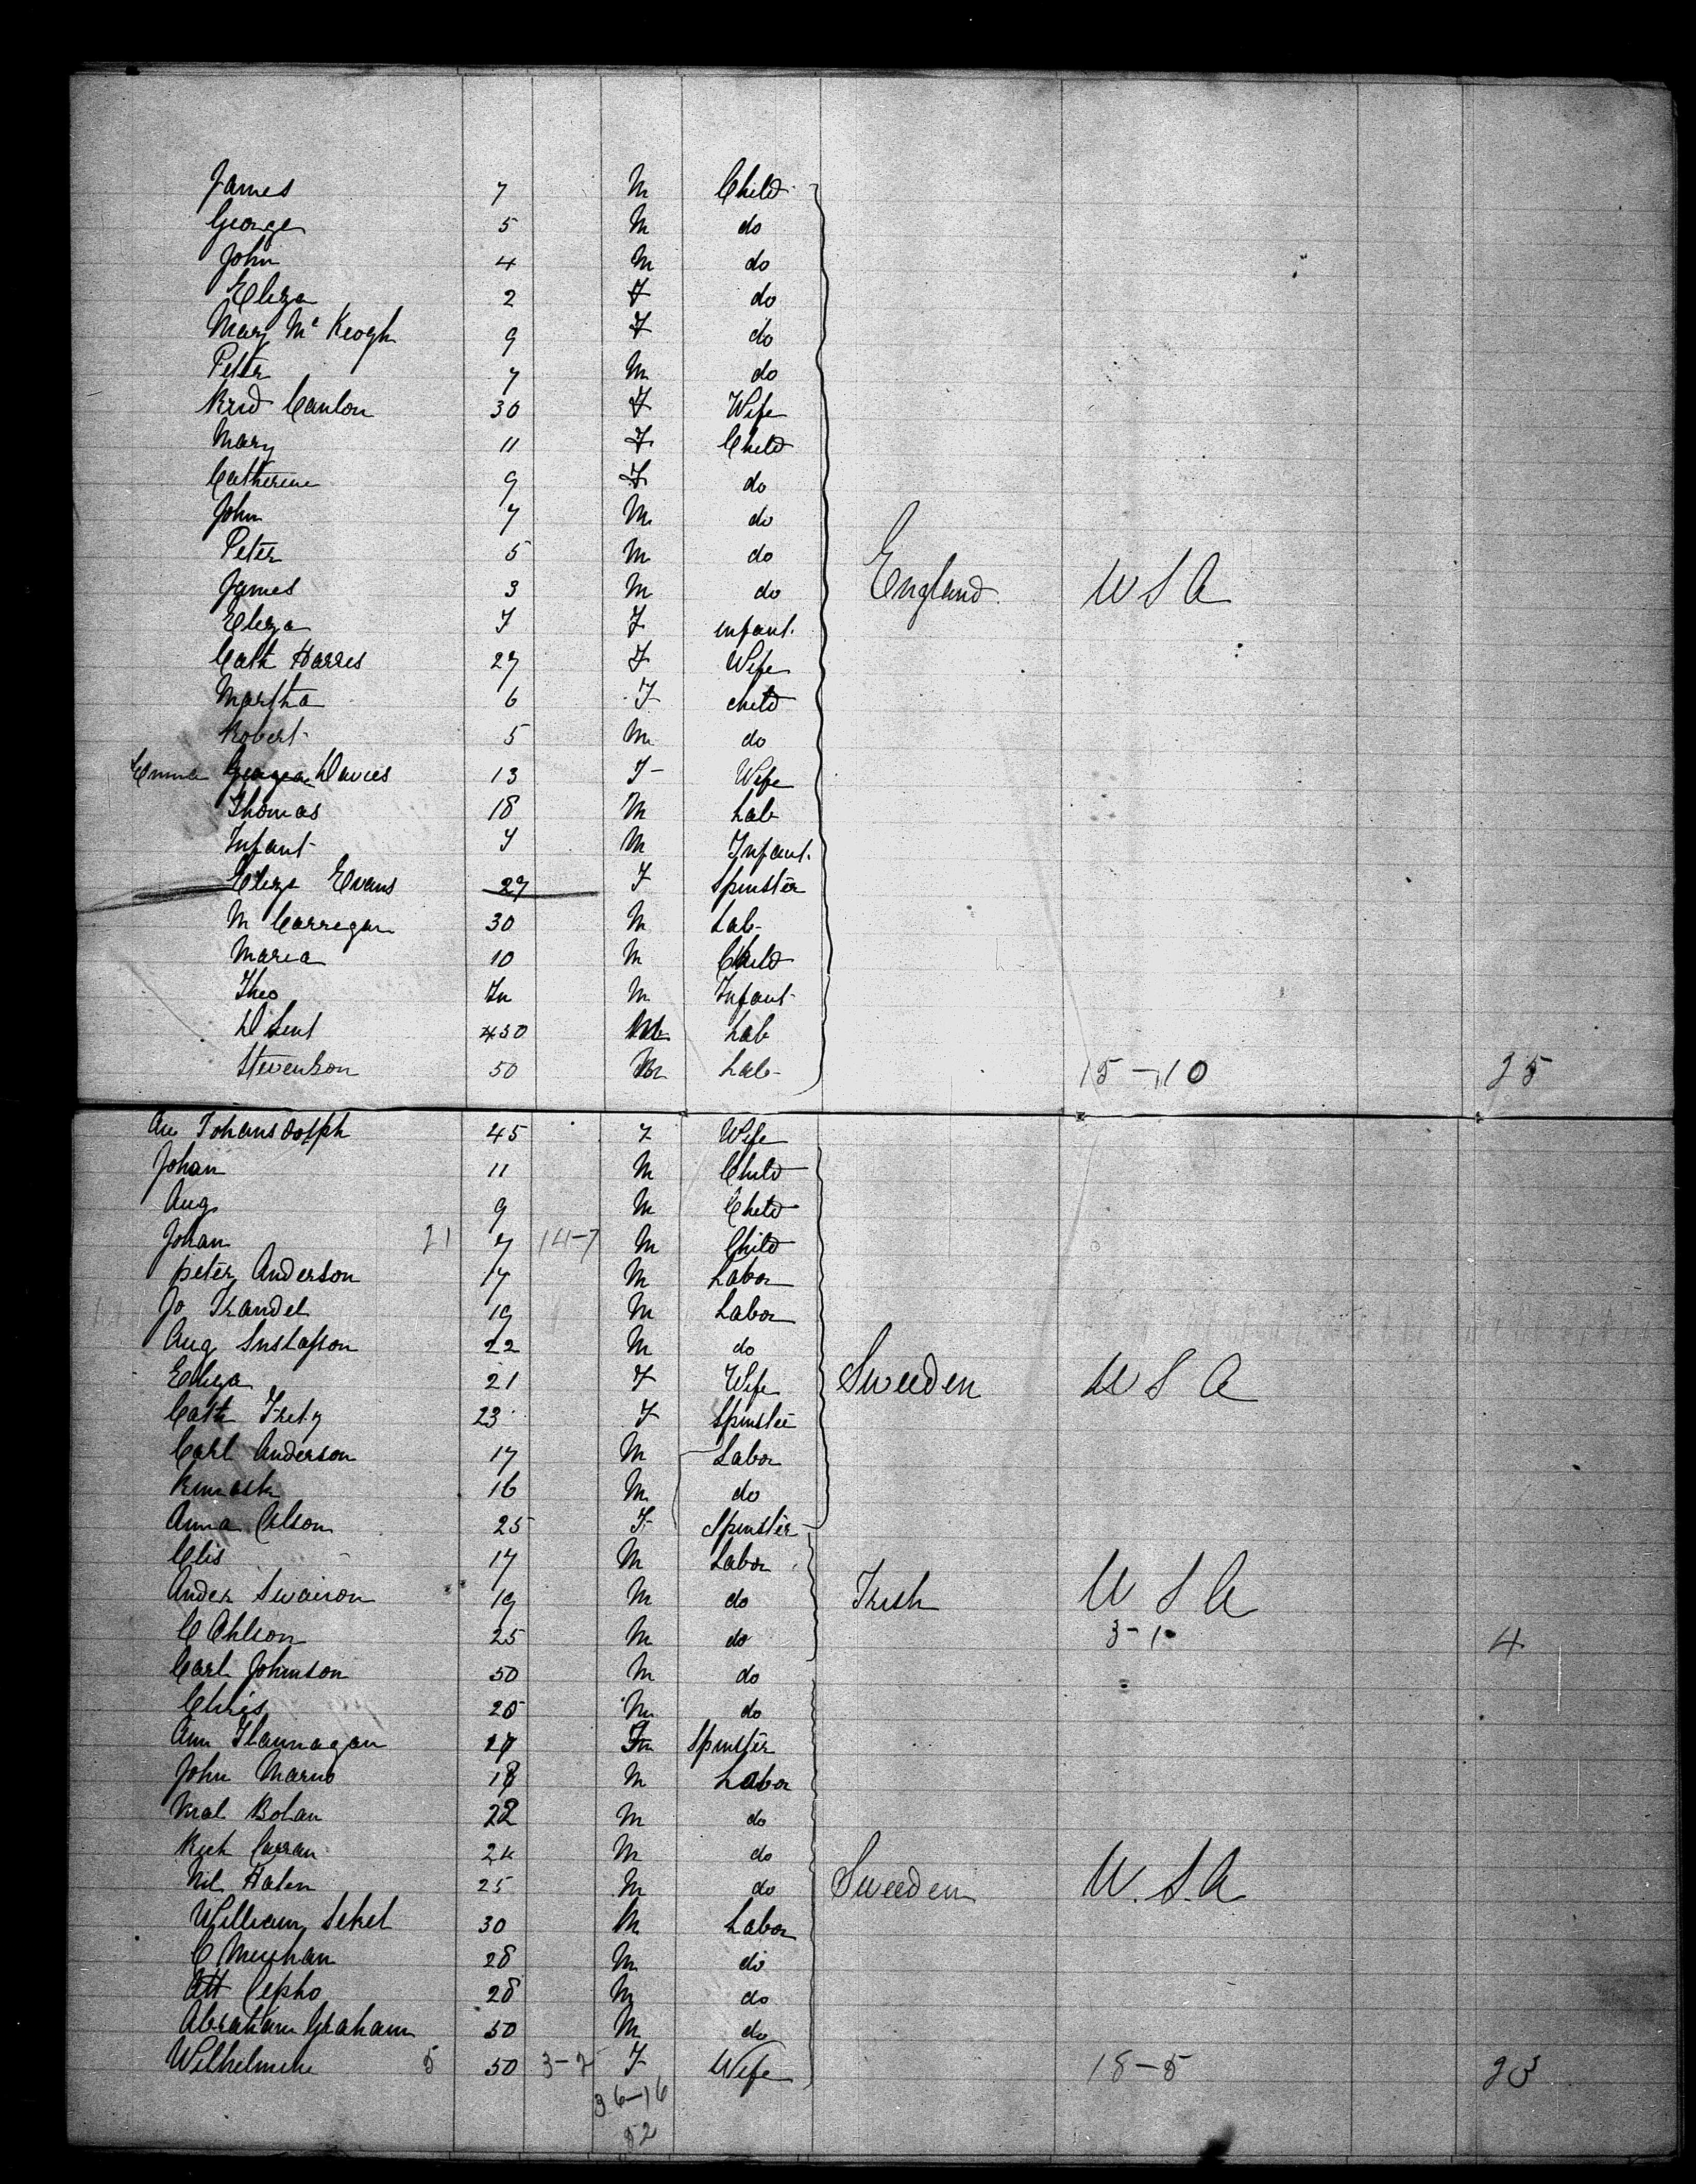 James 7 M Child
George 5 M do
John 4 M do
Eliza 2 F do
Mary Mc Keogh 9 F do
Peter 7 M do
Brid Canlon 30 F Wife
Mary 11 F Child
Catherine 9 F do
John 7 M do
Peter 5 M do
James 3 M do England U S A
Eliza I F infant.
Cath Harris 27 F Wife
Martha 6 F child
Robert 5 M do
Emma Davies 13 F Wife
Thomas 18 M Lab
Infant I M Infant.
Eliza Evans 27 F Spinster
M Carregan 30 M Lab
Maria 10 M Child
Theo In M Infant
D Sent 50 M Lab
Stevenson 50 M Lab 15-10 25
Au Johansdolph 45 F Wife
Johan 11 M Child
Aug 9 M Child
Johan 21 7 14-7 M Child
peter Anderson 17 M Labor
Jo Trandel 19 M Labor
Aug Gustafson 22 M do
Eliza 21 F Wife Sweeden U S A
Cath 23 F Spinster
Carl Anderson 17 M Labor
16 M do
Anna Olson 25 F Spinster
Clis 17 M Labor
Ander Swainson 19 M do Irish U S A
C Ohlson 25 M do 3-1 4
Carl Johnson 50 M do
Chris 25 M do
Ann Flannagan 27 F Spinster
John Marno 18 M Labor
Mal Bolan 22 M do
Rich Curran 24 M do
Nil Halen 25 M do Sweeden U.S.A
William Sekel 30 M Labor
C Meehan 28 M do
Att Cepho 28 M do
Abraham Graham 50 M do
Wilhelmine 5 50 3-2 F Wife 18-5 23
36-16
52